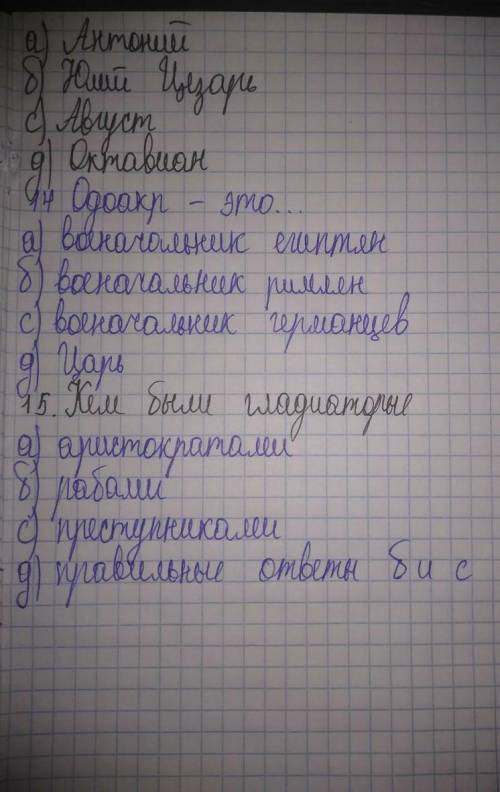 а) Антоний
б) Юлий Цезарь
с) Август
д) Октавиан
14 Одоакр - это...
а) военачальник египтян
б) военачальник римлен
с) военачальник германцев
д) Царь
15. Кем были гладиаторые
а) аристократами
б) рабами
с) преступниками
д) правильные ответы б и с